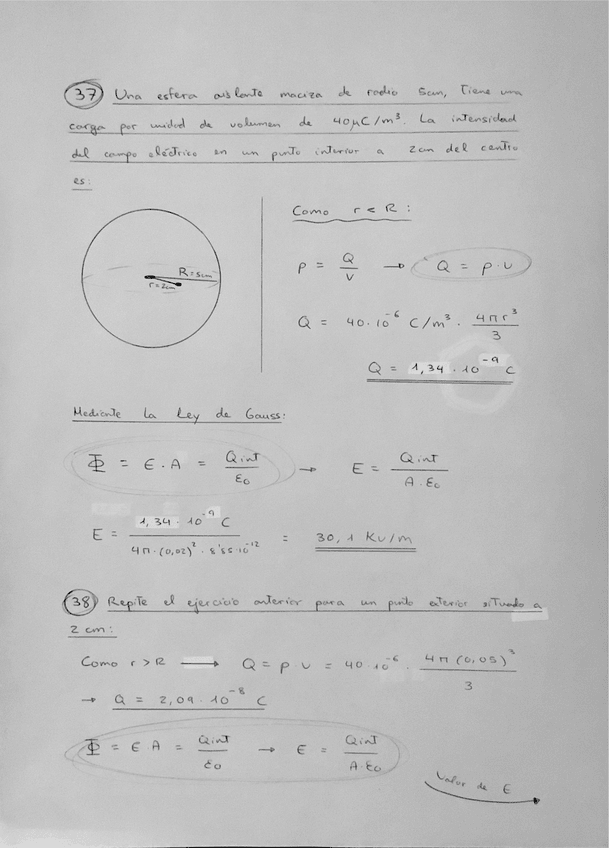 37 Una esfera aislante maciza de radio 5cm, tiene una
carga por unidad de volumen de 40μC/m³. La intensidad
del campo eléctrico en un punto interior a 2cm del centro
es:
R=5cm
r=2cm
Como r < R:
ρ = Q/V → Q = ρ·V
Q = 40·10⁻⁶ C/m³ · 4πr³/3
Q = 1,34·10⁻⁹ C
Mediante la Ley de Gauss:
Φ = E·A = Qint/ε₀ → E = Qint/A·ε₀
E = 1,34·10⁻⁹ C / 4π·(0,02)²·8'85·10⁻¹² = 30,1 KV/m
38 Repite el ejercicio anterior para un punto exterior situado a
2 cm:
Como r > R → Q = ρ·V = 40·10⁻⁶ · 4π(0,05)³/3
→ Q = 2,09·10⁻⁸ C
Φ = E·A = Qint/ε₀ → E = Qint/A·ε₀
Valor de E